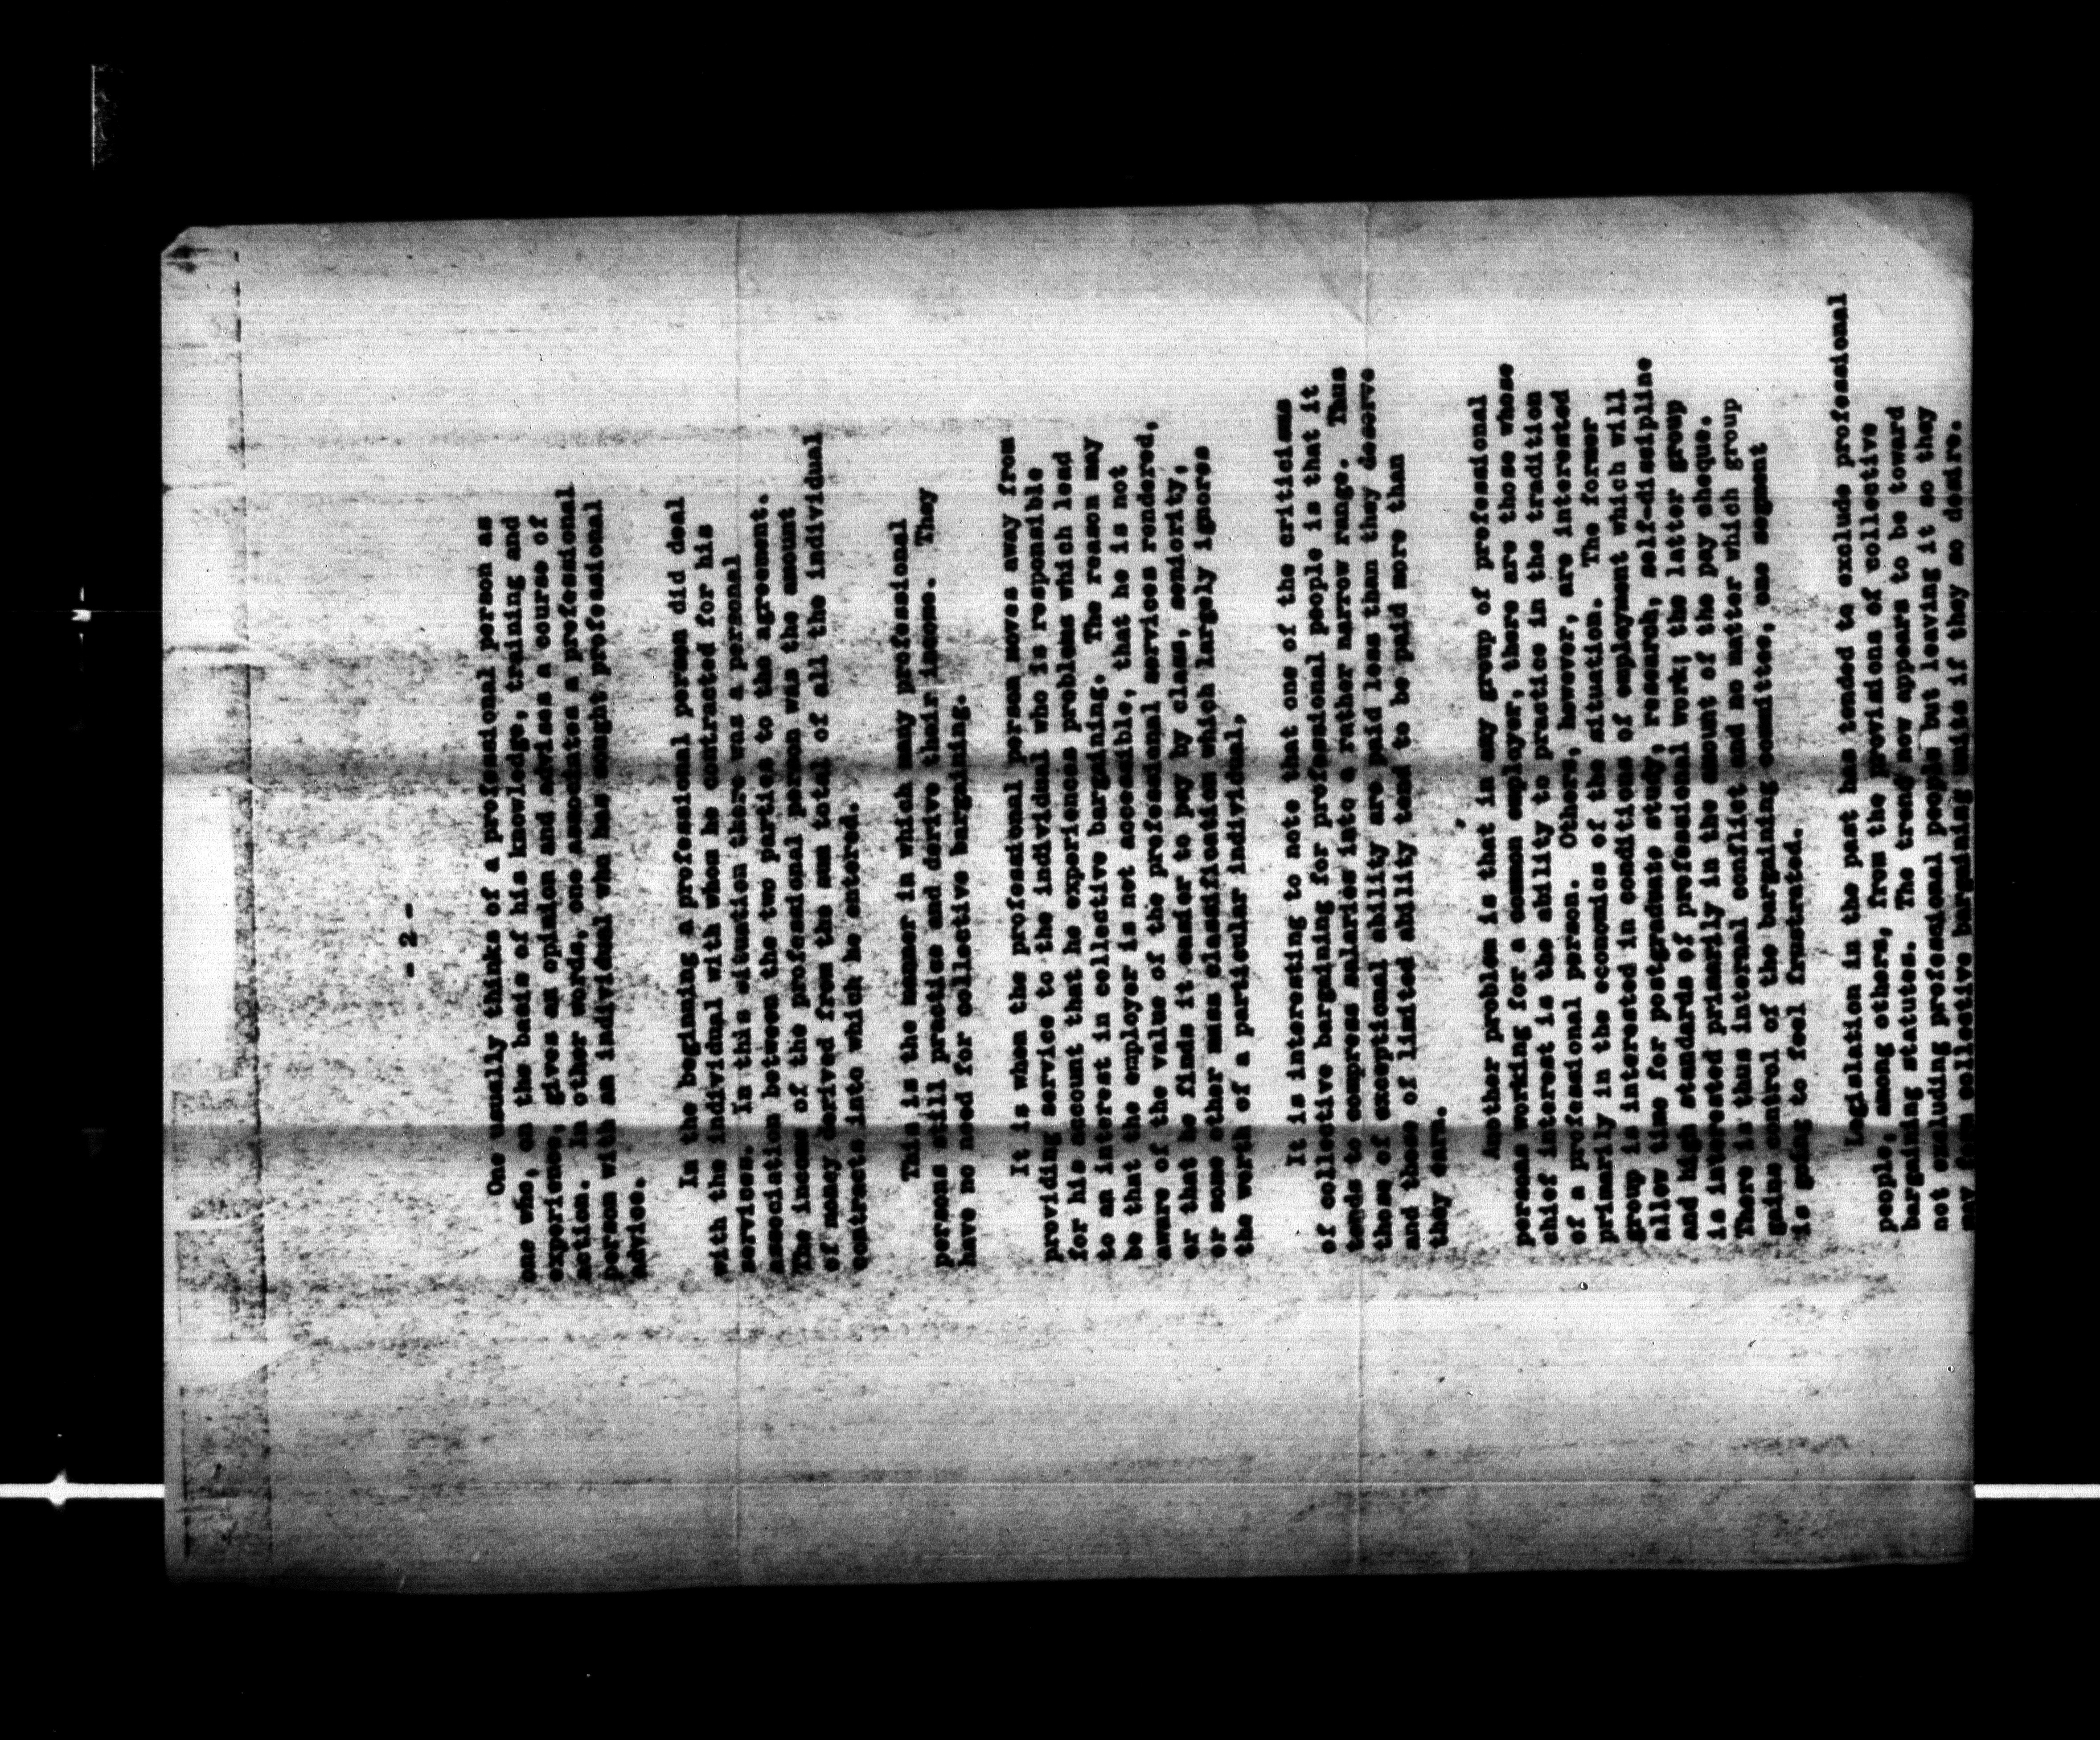 - 2 -
One usually thinks of a professional person as
one who, on the basis of his knowledge, training and
experience, gives an opinion and advises a course of
action. In other words, one associates a professional
person with an individual who has sought professional
advice.
In the beginning a professional person did deal
with the individual with whom he contracted for his
services. In this situation there was a personal
association between the two parties to the agreement.
The income of the professional person was the amount
of money derived from the sum total of all the individual
contracts into which he entered.
This is the manner in which many professional
persons still practice and derive their income. They
have no need for collective bargaining.
It is when the professional person moves away from
providing service to the individual who is responsible
for his account that he experiences problems which lead
to an interest in collective bargaining. The reason may
be that the employer is not accessible, that he is not
aware of the value of the professional services rendered,
or that he finds it easier to pay by class, seniority,
or some other mass classification which largely ignores
the worth of a particular individual.
It is interesting to note that one of the criticisms
of collective bargaining for professional people is that it
tends to compress salaries into a rather narrow range. Thus
those of exceptional ability are paid less than they deserve
and those of limited ability tend to be paid more than
they earn.
Another problem is that in any group of professional
persons working for a common employer, there are those whose
chief interest is the ability to practice in the tradition
of a professional person. Others, however, are interested
primarily in the economics of the situation. The former
group is interested in conditions of employment which will
allow time for postgraduate study, research, self-discipline
and high standards of professional work; the latter group
is interested primarily in the amount of the pay cheque.
There is thus internal conflict and no matter which group
gains control of the bargaining committee, one segment
is going to feel frustrated.
Legislation in the past has tended to exclude professional
people, among others, from the provisions of collective
bargaining statutes. The trend now appears to be toward
not excluding professional people but leaving it so they
may form collective bargaining units if they so desire.